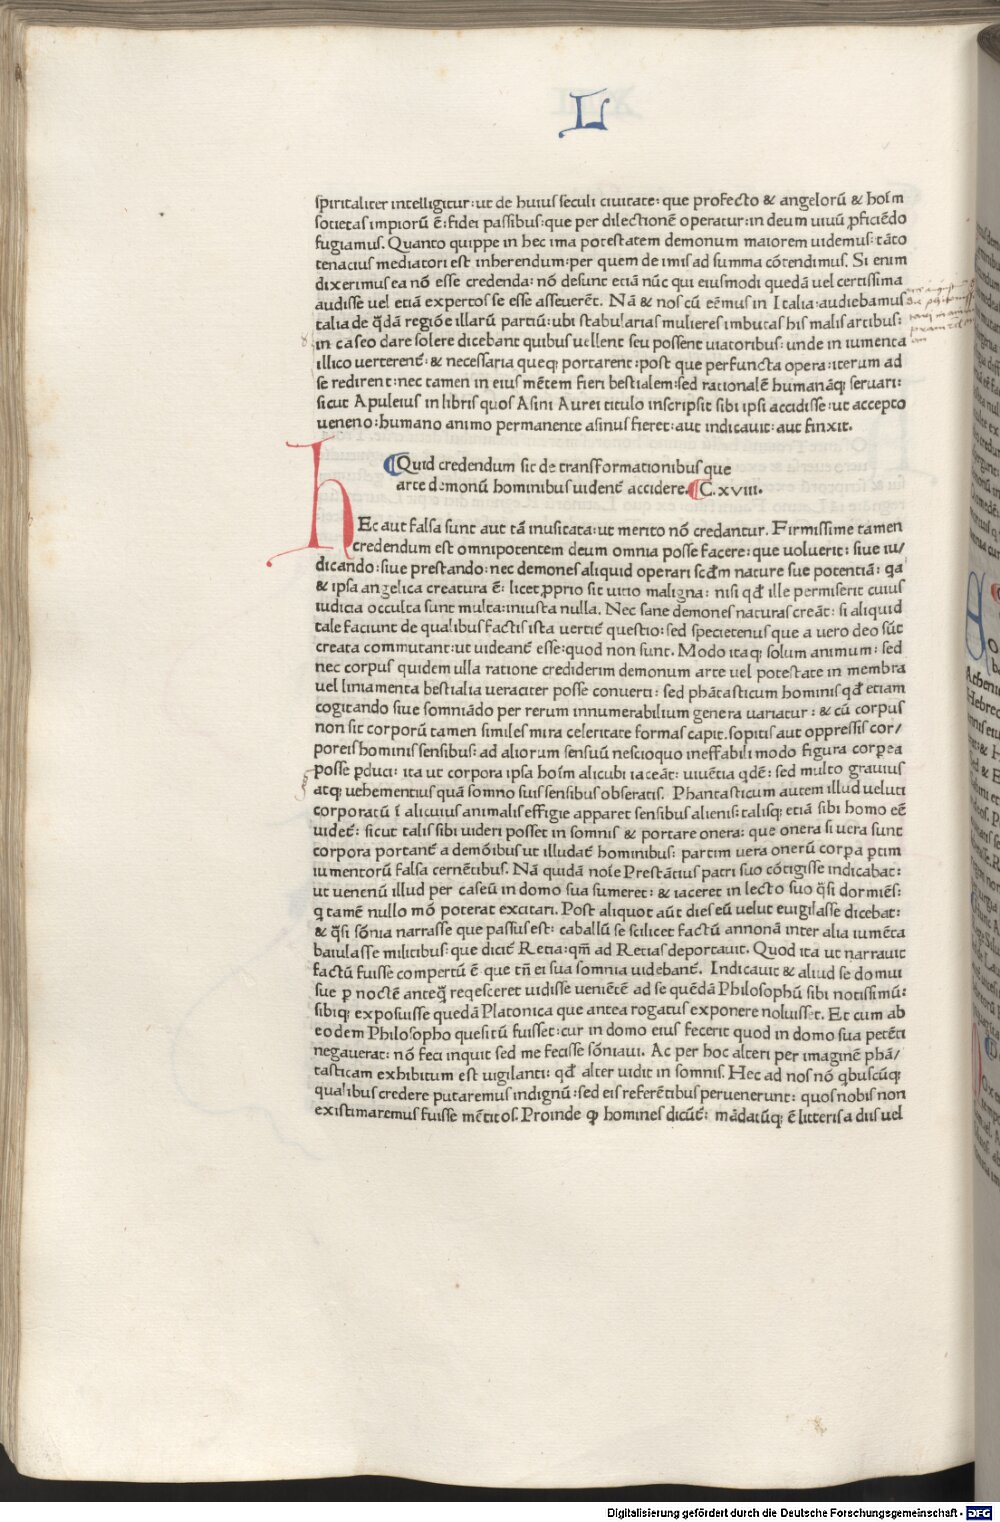 L
spiritaliter intelligitur: ut de huius seculi ciuitate: que profecto & angelorū & hoīm
societas impiorū ē: fidei passibus: que per dilectionē operatur: in deum uiuū ꝓficiēdo
fugiamus. Quanto quippe in hec ima potestatem demonum maiorem uidemus: tāto
tenacius mediatori est inherendum: per quem de imis ad summa cōtendimus. Si enim
dixerimus ea nō esse credenda: nō desunt etiā nūc qui eiusmodi quedā uel certissima
audisse uel etiā expertos se esse asseuerēt. Nā & nos cū eēmus in Italia: audiebamus
talia de q̄dā regiōe illarū partiū: ubi stabularias mulieres imbutas his malis artibus:
in caseo dare solere dicebant quibus uellent seu possent uiatoribus: unde in iumenta
illico uerterent̄: & necessaria queq; portarent: post que perfuncta opera: iterum ad
se redirent: nec tamen in eius mētem fieri bestialem: sed rationalē humanāq; seruari:
sicut Apuleius in libris quos Asini Aurei titulo inscripsit sibi ipsi accidisse: ut accepto
ueneno: humano animo permanente asinus fieret: aut indicauit: aut finxit.
Quid credendum sit de transformationibus que
arte demonū hominibus uident̄ accidere. C. xviii.
hEc aut falsa sunt aut tā inusitata: ut merito nō credantur. Firmissime tamen
credendum est omnipotentem deum omnia posse facere: que uoluerit: siue iu/
dicando: siue prestando: nec demones aliquid operari scd̄m nature sue potentiā: qa
& ipsa angelica creatura ē: licet ꝓprio sit uitio maligna: nisi qd̄ ille permiserit cuius
iudicia occulta sunt multa: iniusta nulla. Nec sane demones naturas creāt: si aliquid
tale faciunt de qualibus factis ista uertit̄ questio: sed specietenus que a uero deo sūt
creata commutant: ut uideant̄ esse: quod non sunt. Modo itaq; solum animum: sed
nec corpus quidem ulla ratione crediderim demonum arte uel potestate in membra
uel liniamenta bestialia ueraciter posse conuerti: sed phātasticum hominis qd̄ etiam
cogitando siue somniādo per rerum innumerabilium genera uariatur: & cū corpus
non sit corporū tamen similes mira celeritate formas capit. sopitis aut oppressis cor/
poreis hominis sensibus: ad aliorum sensuū nescioquo ineffabili modo figura corꝑea
posse ꝑduci: ita ut corpora ipsa hoīm alicubi iaceāt: uiuētia qdē: sed multo grauius
atq; uehementius quā somno suis sensibus obseratis. Phantasticum autem illud ueluti
corporatū ī alicuius animalis effigie apparet sensibus alienis: talisq; etiā sibi homo eē
uidet̄: sicut talis sibi uideri posset in somnis & portare onera: que onera si uera sunt
corpora portant̄ a demōibus ut illudat̄ hominibus: partim uera onerū corꝑa ꝑtim
iumentorū falsa cernētibus. Nā quidā noīe Prestātius patri suo cōtigisse indicabat:
ut uenenū illud per caseū in domo sua sumeret: & iaceret in lecto suo q̄si dormiēs:
q tamē nullo mō poterat excitari. Post aliquot aūt dies eū uelut euigilasse dicebat:
& q̄si sōnia narrasse que passus est: caballū se scilicet factū annonā inter alia iumēta
baiulasse militibus: que dicit̄ Retia: qm̄ ad Retias deportauit. Quod ita ut narrauit
factū fuisse compertū ē que tn̄ ei sua somnia uidebant̄. Indicauit & aliud se domui
sue ꝑ noctē anteq̄ reqesceret uidisse ueniētē ad se quēdā Philosophū sibi notissimū:
sibiq; exposuisse quedā Platonica que antea rogatus exponere noluisset. Et cum ab
eodem Philosopho quesitū fuisset: cur in domo eius fecerit quod in domo sua petēti
negauerat: nō feci inquit sed me fecisse sōniaui. Ac per hoc alteri per imaginē phā/
tasticam exhibitum est uigilanti: qd̄ alter uidit in somnis. Hec ad nos nō qbuscūq;
qualibus credere putaremus indignū: sed eis referētibus peruenerunt: quos nobis non
existimaremus fuisse mētitos. Proinde ꝙ homines dicūt̄: mādatūq; ē litteris a diis uel
Digitalisierung gefördert durch die Deutsche Forschungsgemeinschaft - DFG